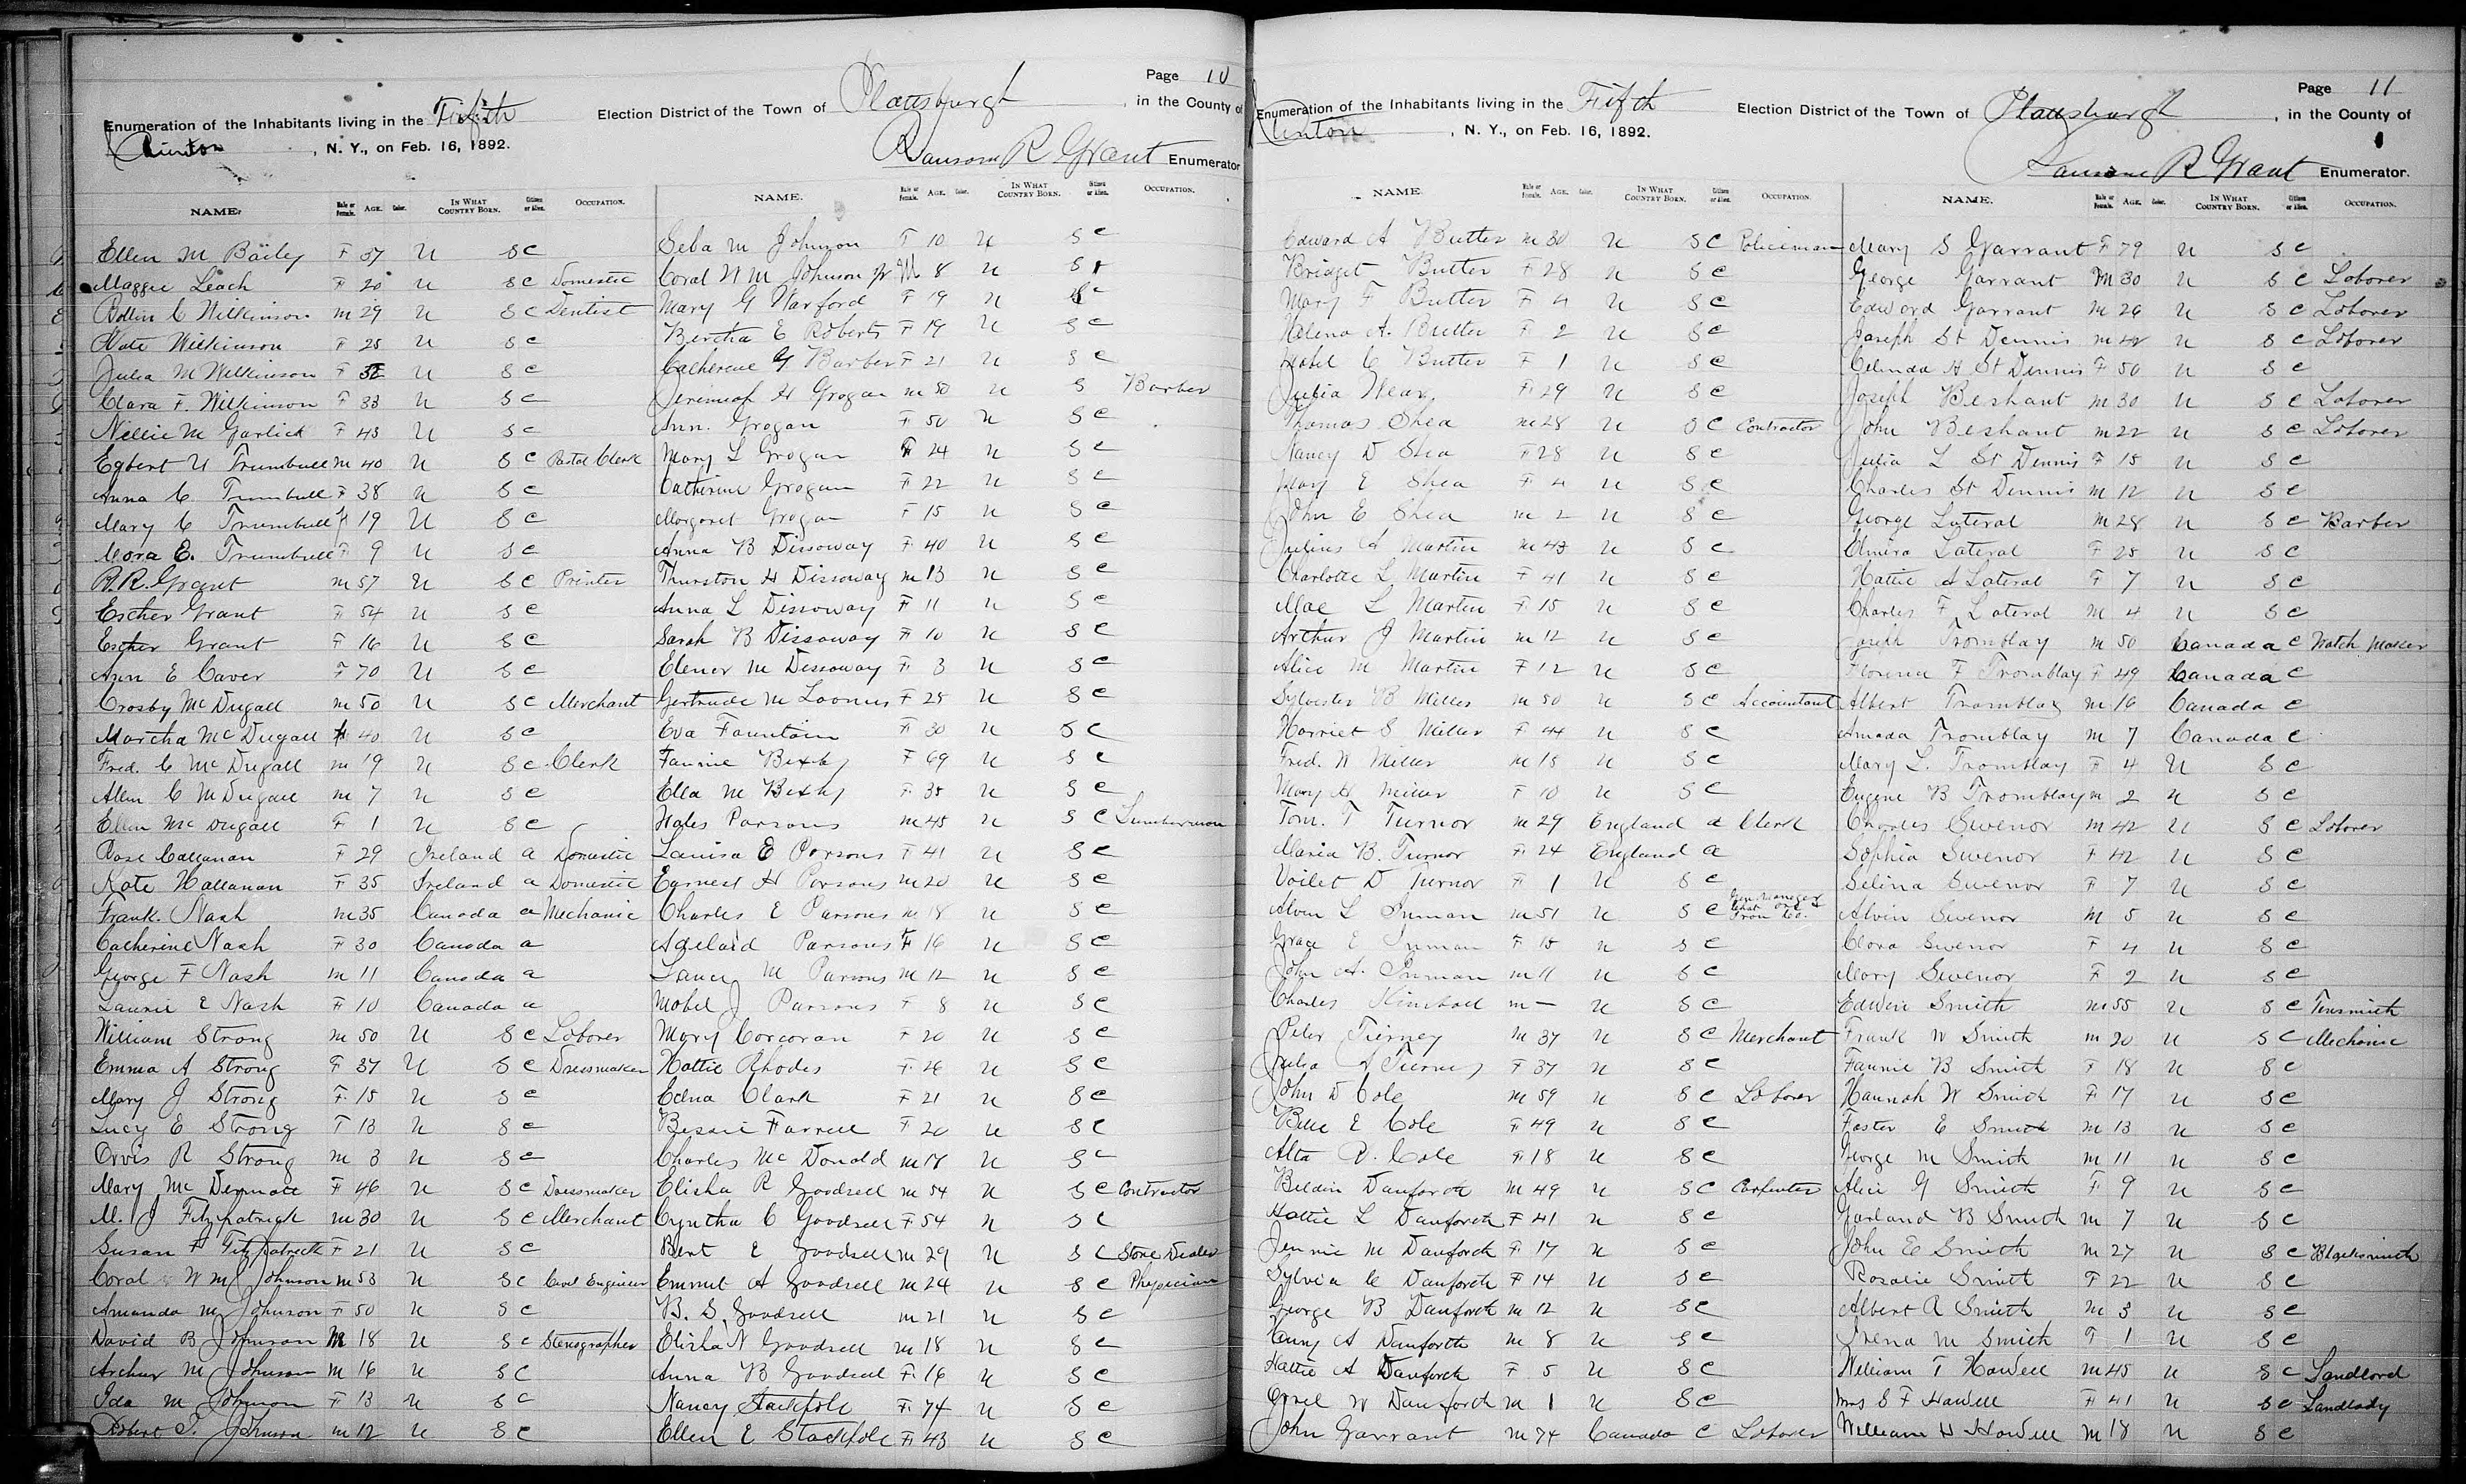 Page 10
Enumeration of the Inhabitants living in the Fifth Election District of the Town of Plattsburgh, in the County of
Clinton, N. Y., on Feb. 16, 1892.
Ransom R Grant Enumerator
NAME. Male or Female. AGE. Color. IN WHAT COUNTRY BORN. Citizen or Alien. OCCUPATION.
Ellen M Bailey F 37 U S C
Maggie Leach F 20 U S C Domestic
Rollin C Wilkinson M 29 U S C Dentist
Kate Wilkinson F 25 U S C
Julia M Wilkinson F 32 U S C
Clara F. Wilkinson F 33 U S C
Nellie M Garlick F 43 U S C
Egbert U Trumbull M 40 U S C Postal Clerk
Anna C. Trumbull F 38 U S C
Mary C Trumbull F 19 U S C
Cora E. Trumbull F 9 U S C
R.R. Grant M 57 U S C Printer
Esther Grant F 54 U S C
Esther Grant F 16 U S C
Ann E Caver F 70 U S C
Crosby McDugall M 50 U S C Merchant
Martha McDugall F 40 U S C
Fred. C McDugall M 19 U S C Clerk
Allen C McDugall M 7 U S C
Ellen McDugall F 1 U S C
Rose Callanan F 29 Ireland a Domestic
Kate Hallanan F 35 Ireland a Domestic
Frank. Nash M 35 Canada a Mechanic
Catherine Nash F 30 Canada a
George F Nash M 11 Canada a
Laurie E Nash F 10 Canada a
William Strong M 50 U S C Laborer
Emma A Strong F 37 U S C Dressmaker
Mary J Strong F 15 U S C
Lucy E Strong F 13 U S C
Orvis R Strong M 3 U S C
Mary McDermott F 46 U S C Dressmaker
M. J Fitzpatrick M 30 U S C Merchant
Susan F Fitzpatrick F 21 U S C
Coral W M Johnson M 53 U S C Civil Engineer
Amanda M Johnson F 50 U S C
David B Johnson M 18 U S C Stenographer
Archer M Johnson M 16 U S C
Ida M Johnson F 13 U S C
Robert T. Johnson M 12 U S C
NAME. Male or Female. AGE. Color. IN WHAT COUNTRY BORN. Citizen or Alien. OCCUPATION.
Seba M Johnson F 10 U S C
Coral W M Johnson Jr M 8 U S
Mary G Harford F 19 U S C
Bertha E Roberts F 19 U S C
Catherine G Barber F 21 U S C
H Grogan M 50 U S Barber
Ann. Grogan F 50 U S C
Mary L Grogan F 24 U S C
Catherine Grogan F 22 U S C
Margaret Grogan F 15 U S C
Anna B Dissoway F 40 U S C
Thurston H Dissoway M 13 U S C
Anna L Dissoway F 11 U S C
Sarah B Dissoway F 10 U S C
Elenor M Dissoway F 3 U S C
Gertrude M Loomis F 25 U S C
Eva Fountain F 30 U S C
Fannie Bixby F 69 U S C
Ella M Bixby F 35 U S C
Hales Parsons M 45 U S C Lumberman
Louisa E Parsons F 41 U S C
Earnest H Parsons M 20 U S C
Charles E Parsons M 18 U S C
Adelaid Parsons F 16 U S C
M Parsons M 12 U S C
Mabel J Parsons F 8 U S C
Mary Corcoran F 20 U S C
Hattie Rhodes F 26 U S C
Edna Clark F 21 U S C
Bessie Farrell F 20 U S C
Charles McDonald M 18 U S C
Elisha R Goodsell M 54 U S C Contractor
Cyntha C Goodsell F 54 U S C
Bert E Goodsell M 29 U S C Stone Dealer
Emmet A Goodsell M 24 U S C Physician
B. S. Goodsell M 21 U S C
Elisha N Goodsell M 18 U S C
Anna B Goodsell F 16 U S C
Nancy Stackpole F 74 U S C
Ellen E Stackpole F 43 U S C
Page 11
Enumeration of the Inhabitants living in the Fifth Election District of the Town of Plattsburgh, in the County of
Clinton, N. Y., on Feb. 16, 1892.
Ransom R Grant Enumerator.
NAME. Male or Female. AGE. Color. IN WHAT COUNTRY BORN. Citizen or Alien. OCCUPATION.
Edward A Butter M 30 U S C Policeman
Bridget Butter F 28 U S C
Mary F Butter F 4 U S C
Helena A. Butter F 2 U S C
Mabel C Butter F 1 U S C
Julia Wear F 29 U S C
Thomas Shea M 28 U S C Contractor
Nancy D Shea F 28 U S C
Mary E Shea F 4 U S C
John E Shea M 2 U S C
Julius A Martin M 43 U S C
Charlotte L Martin F 41 U S C
Mae L Martin F 15 U S C
Arthur J Martin M 12 U S C
Alice M Martin F 12 U S C
Sylvester B Miller M 50 U S C Accountant
Harriet S Miller F 44 U S C
Fred. W Miller M 15 U S C
Mary H Miller F 10 U S C
Tom. T Turnor M 29 England a Clerk
Maria B. Turnor F 24 England a
Voilet D Turnor F 1 U S C
Alvin L Inman M 51 U S C Gen Manager Chat Ore & Iron Co.
Grace E Inman F 15 U S C
John A. Inman M 11 U S C
Charles Kimball M — U S C
Peter Tierney M 37 U S C Merchant
Julia A Tierney F 37 U S C
John D Cole M 59 U S C Laborer
Belle E Cole F 49 U S C
Alta D. Cole F 18 U S C
Beldin Danforth M 49 U S C Carpenter
Hattie L Danforth F 41 U S C
Jennie M Danforth F 17 U S C
Sylvia C Danforth F 14 U S C
George B Danforth M 12 U S C
Henry A Danforth M 8 U S C
Hattie A Danforth F 5 U S C
Orvel W Danforth M 1 U S C
John Garrant M 74 Canada C Laborer
NAME. Male or Female. AGE. Color. IN WHAT COUNTRY BORN. Citizen or Alien. OCCUPATION.
Mary S Garrant F 79 U S C
George Garrant M 30 U S C Laborer
Edward Garrant M 26 U S C Laborer
Joseph St Dennis M 42 U S C Laborer
Celinda A St Dennis F 50 U S C
Joseph Beshant M 30 U S C Laborer
John Beshant M 22 U S C Laborer
Julia L St Dennis F 15 U S C
Charles St Dennis M 12 U S C
George Lateral M 28 U S C Barber
Elmira Lateral F 25 U S C
Hattie A Lateral F 7 U S C
Charles F Lateral M 4 U S C
Joseph Tromblay M 50 Canada C Watch Maker
Florence F Tromblay F 49 Canada C
Albert Tromblay M 16 Canada C
Amada Tromblay M 7 Canada C
Mary L. Tromblay F 4 U S C
Eugene B Tromblay M 2 U S C
Charles Swenor M 42 U S C Laborer
Sophia Swenor F 42 U S C
Selina Swenor F 7 U S C
Alvin Swenor M 5 U S C
Clora Swenor F 4 U S C
Mary Swenor F 2 U S C
Edwin Smith M 55 U S C Tinsmith
Frank W Smith M 20 U S C Mechanic
Fannie B Smith F 18 U S C
Hannah W Smith F 17 U S C
Foster E Smith M 13 U S C
George M Smith M 11 U S C
Alice G Smith F 9 U S C
Garland B Smith M 7 U S C
John E Smith M 27 U S C Blacksmith
Rosalie Smith F 22 U S C
Albert R Smith M 3 U S C
Irena M Smith F 1 U S C
William T Howell M 45 U S C Landlord
Mrs S F Howell F 41 U S C Landlady
William H Howell M 18 U S C